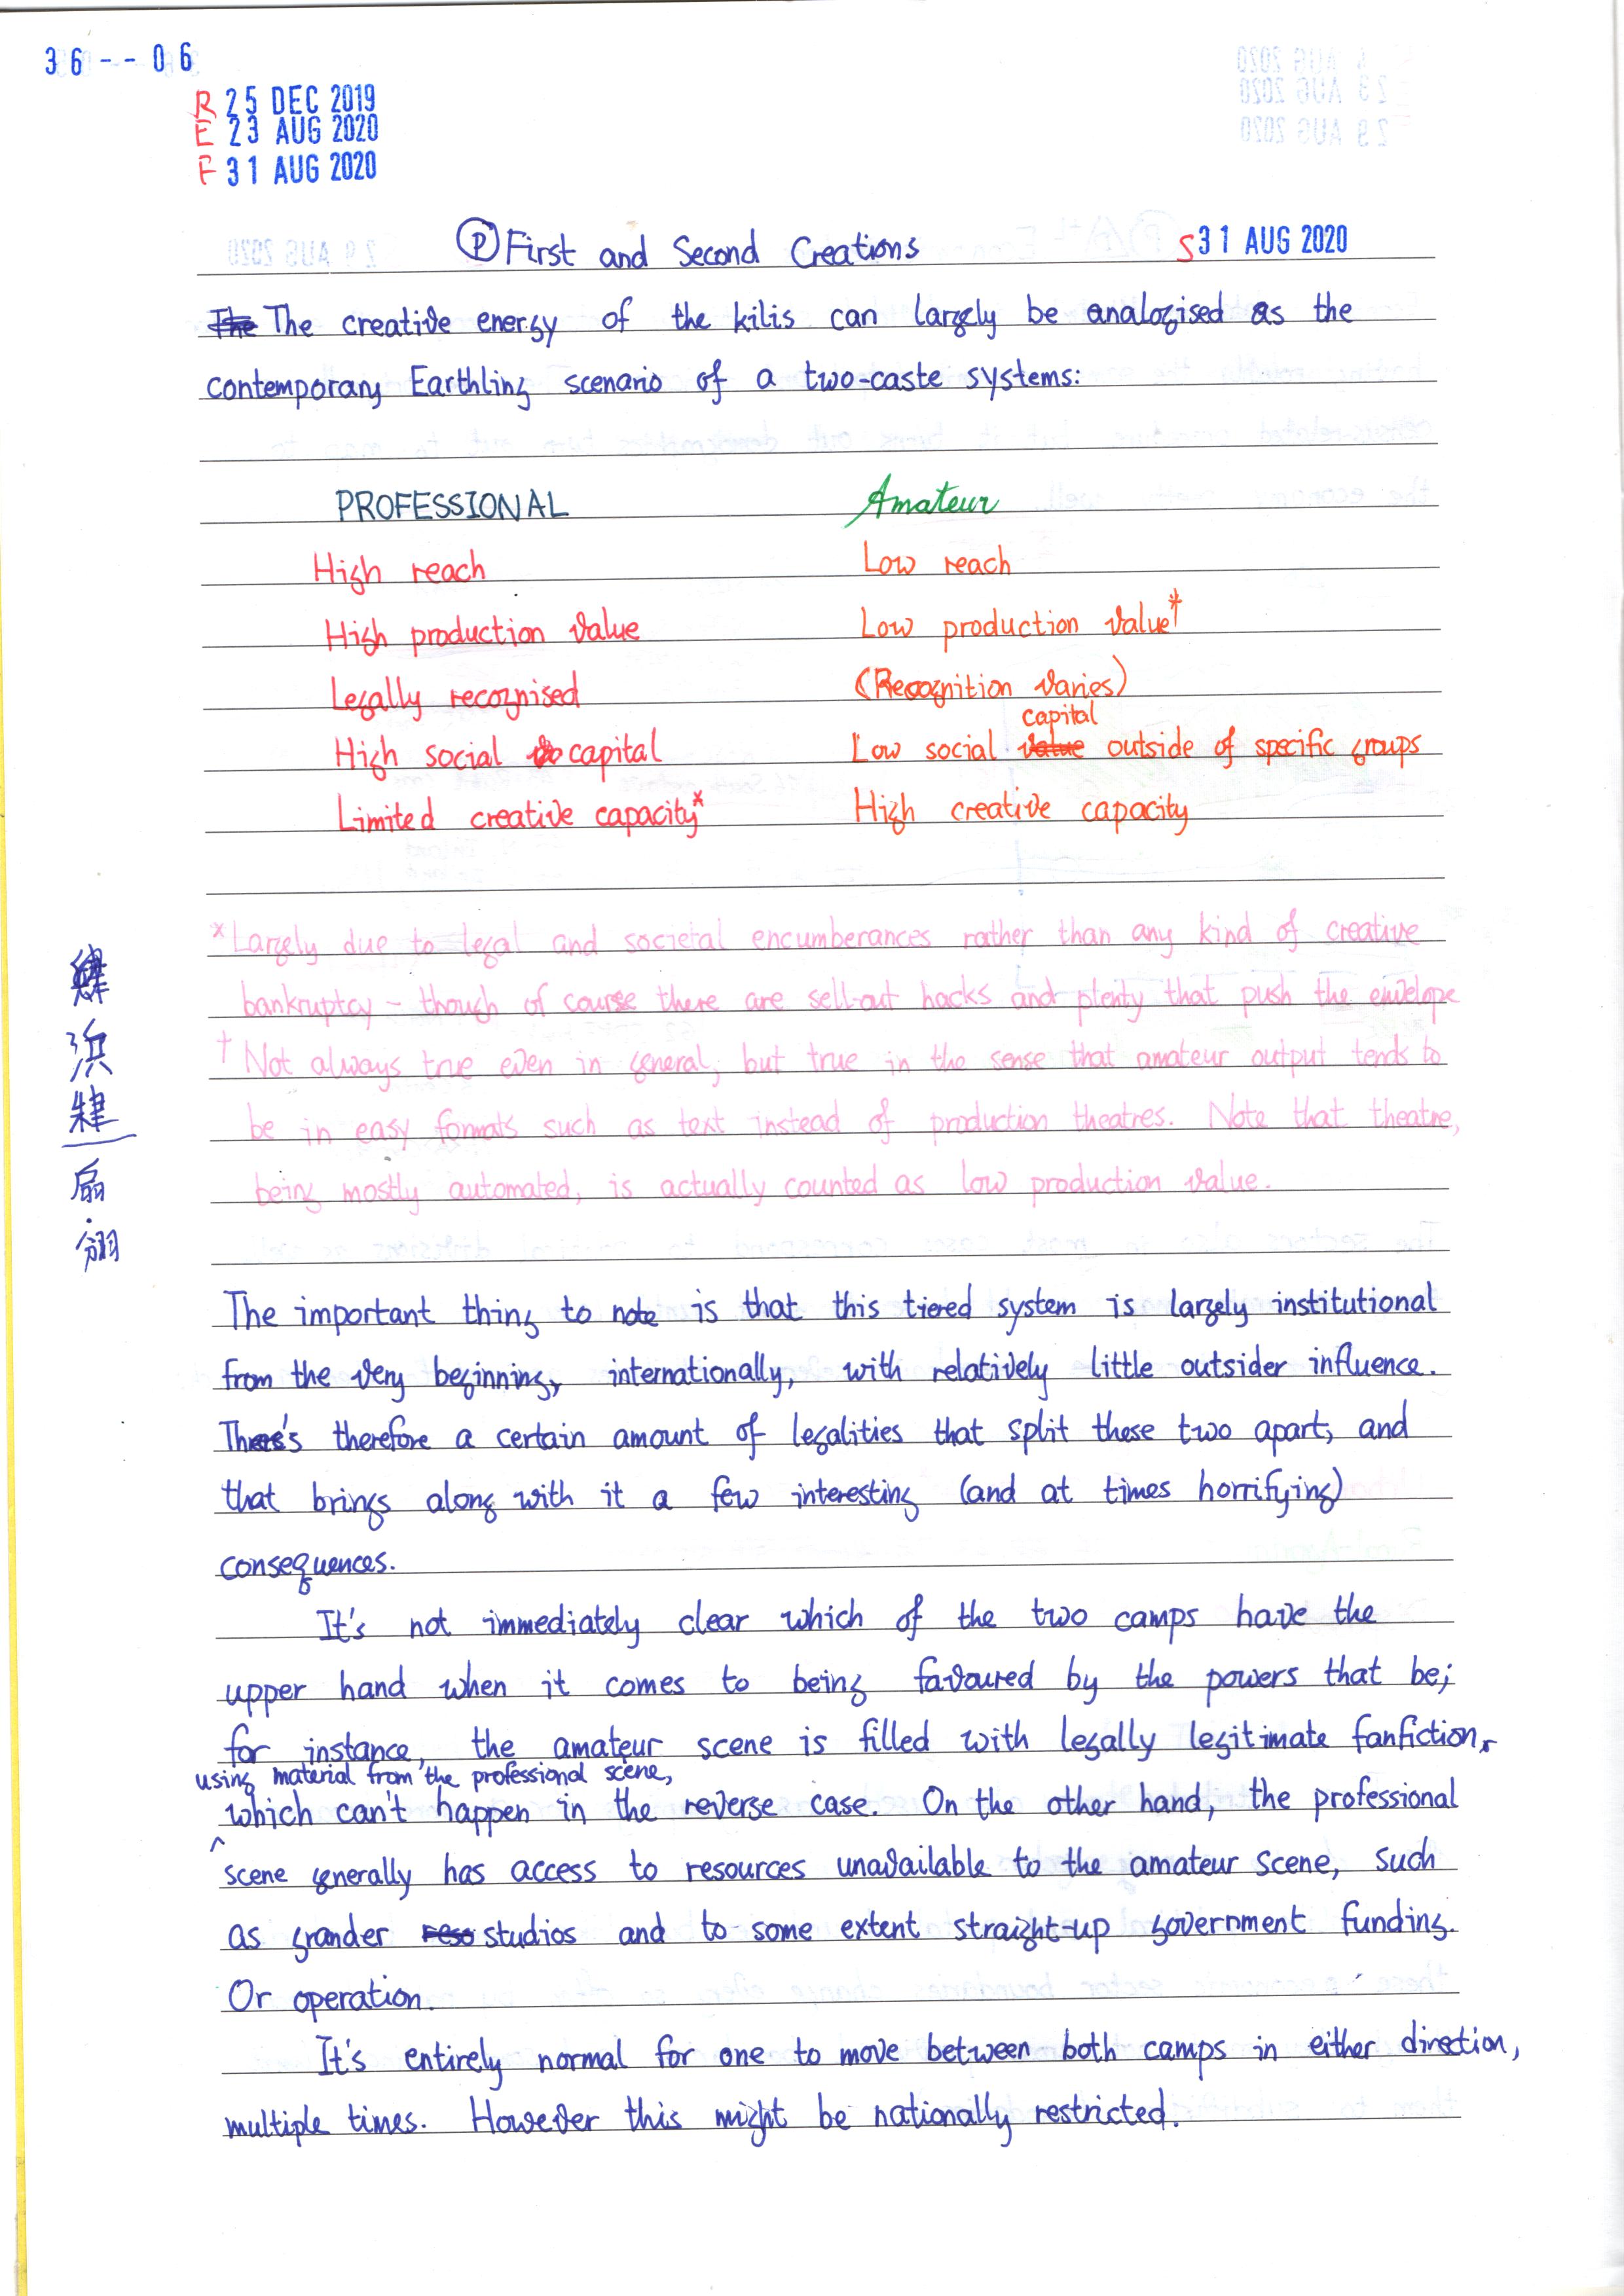 36--06
R 25 DEC 2019
E 23 AUG 2020
F 31 AUG 2020
Ⓟ First and Second Creations
S 31 AUG 2020
The The creative energy of the kilis can largely be analogised as the
contemporary Earthling scenario of a two-caste systems:
PROFESSIONAL Amateur
High reach Low reach
High production value Low production value†
Legally recognised (Recognition varies)
capital
High social capital Low social value outside of specific groups
Limited creative capacity* High creative capacity
*Largely due to legal and societal encumberances rather than any kind of creative
bankruptcy – though of course there are sell-out hacks and plenty that push the envelope
† Not always true even in general, but true in the sense that amateur output tends to
be in easy formats such as text instead of production theatres. Note that theatre,
being mostly automated, is actually counted as low production value.
The important thing to note is that this tiered system is largely institutional
from the very beginning, internationally, with relatively little outsider influence.
There's therefore a certain amount of legalities that split these two apart, and
that brings along with it a few interesting (and at times horrifying)
consequences.
It's not immediately clear which of the two camps have the
upper hand when it comes to being favoured by the powers that be;
for instance, the amateur scene is filled with legally legitimate fanfiction,
using material from the professional scene,
which can't happen in the reverse case. On the other hand, the professional
scene generally has access to resources unavailable to the amateur scene, such
as grander reso studios and to some extent straight-up government funding.
Or operation.
It's entirely normal for one to move between both camps in either direction,
multiple times. However this might be nationally restricted.